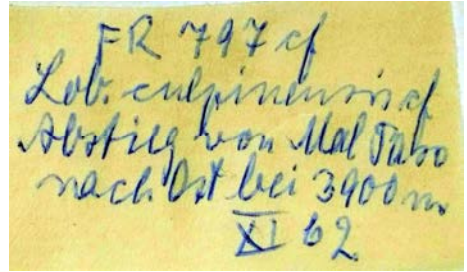 FR 797 cf
Lob. culpinensis cf
Abstieg von Mal Paso
nach Ost bei 3900 m.
XI 62